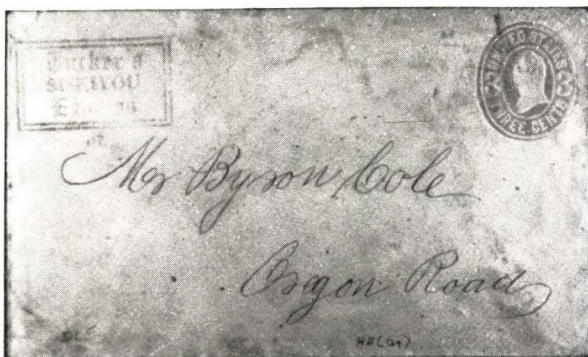 Tucker's
SISKIYOU
Express
UNITED STATES
THREE CENTS
Mr Byron Cole
Oregon Road